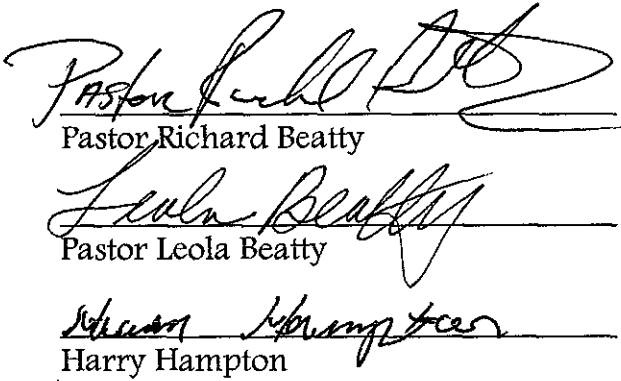 Pastor Richard Beatty
Pastor Richard Beatty
Leola Beatty
Pastor Leola Beatty
Hampton
Harry Hampton